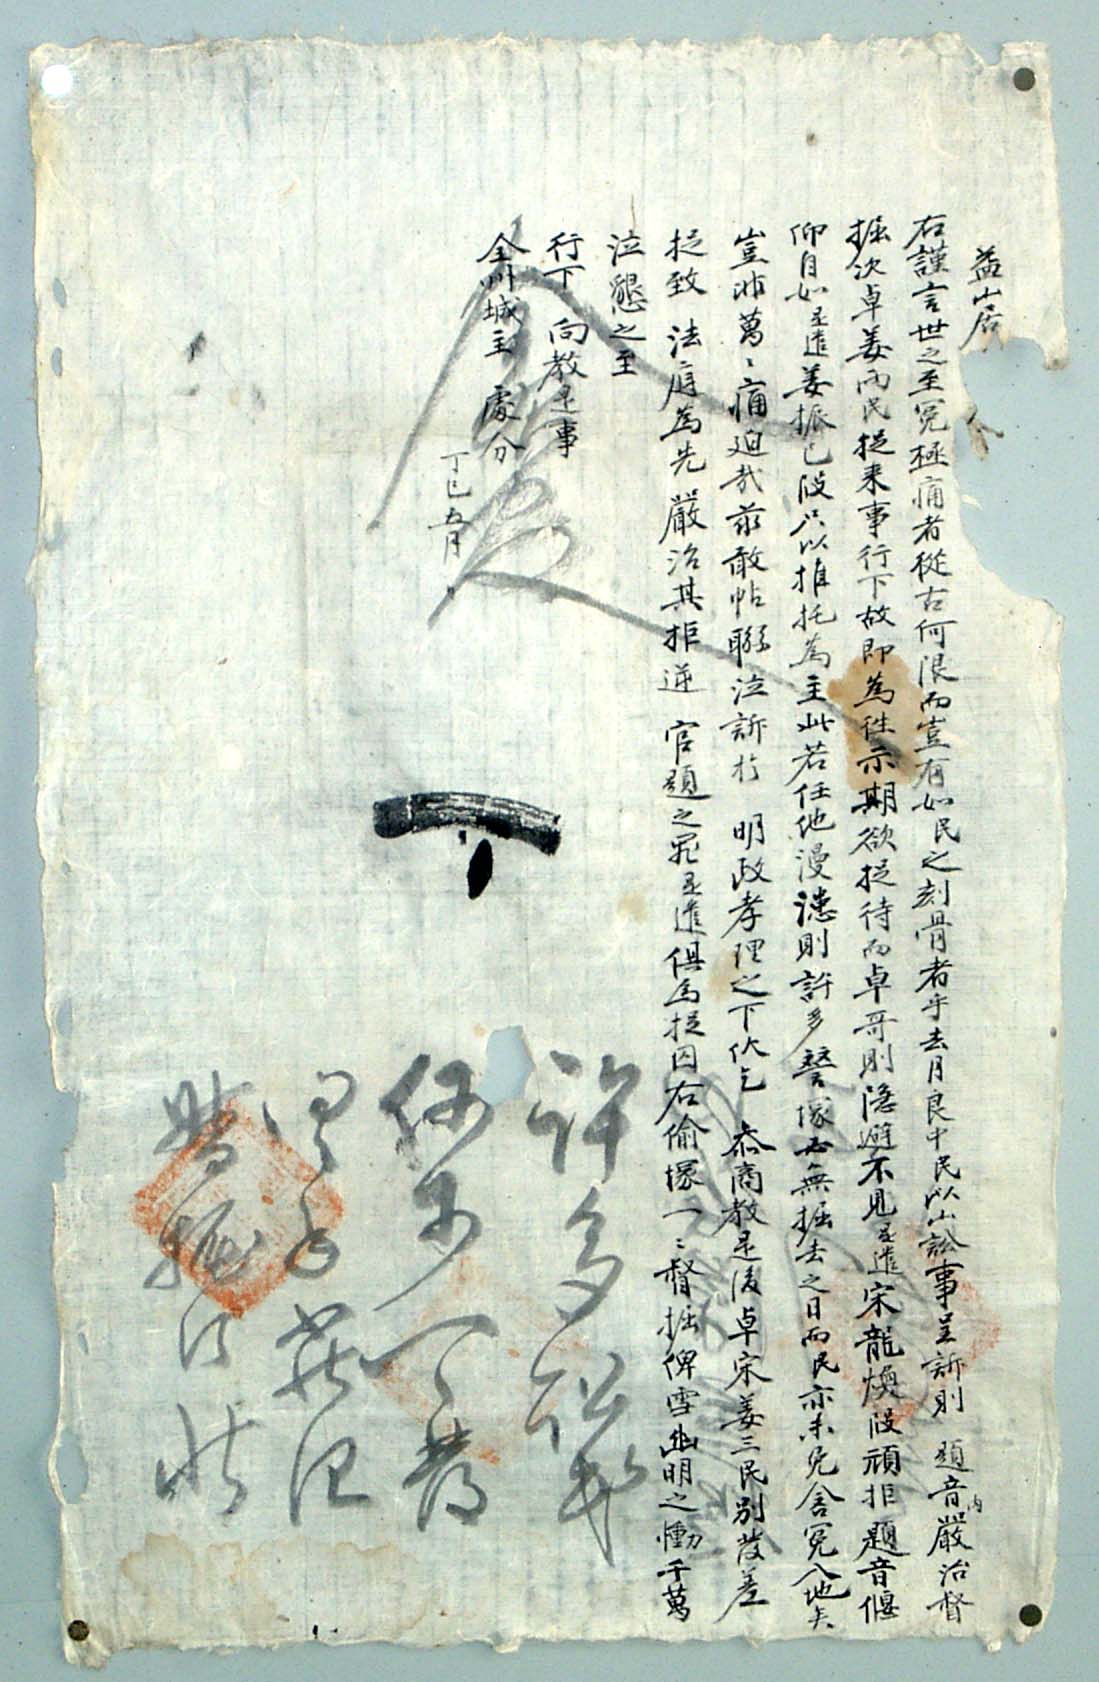 益山居
右謹言世之至冤極痛者從古何限而豈有如民之刻骨者乎去月良中民以山訟事呈訴則 題音內嚴治督
掘次卓姜兩民捉來事行下故即爲往示期欲捉待而卓哥則隱避不見是遣宋龍煥段頑拒題音偃
仰自如是遣姜振已段只以推托爲主此若任他漫漶則許多讐塚必無掘去之日而民亦未免含冤入地矣
豈非萬〻痛迫哉玆敢帖聯泣訴於 明政孝理之下伏乞 叅商敎是後卓宋姜三民別發差
捉致 法庭爲先嚴治其拒逆 官題之罪是遣俱爲捉囚右偷塚一〻督掘俾雪幽明之慟千萬
泣懇之至
行下向敎是事
全州城主 處分
丁巳五月 日
許多